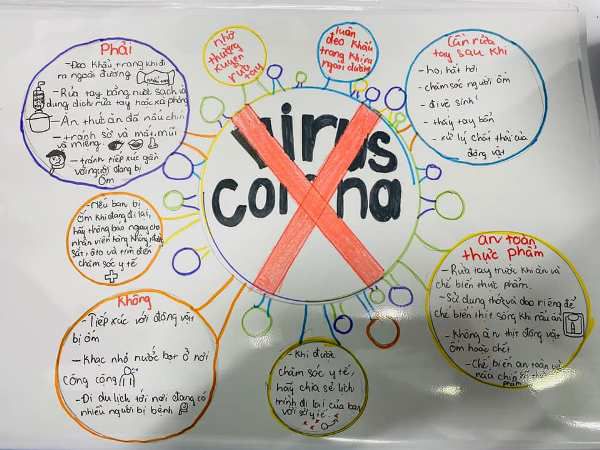 Phải
- Đeo khẩu trang khi đi
ra ngoài đường
- Rửa tay bằng nước sạch và
dung dịch rửa tay hoặc xà phòng
- Ăn thức ăn đã nấu chín
- tránh sờ và mắt, mũi
và miệng
- tránh tiếp xúc gần
với người đang bị
ốm
nhớ
thường
xuyên
rửa
tay
luôn
đeo khẩu
trang khi ra
ngoài đường
Cần rửa
tay sau khi
- ho, hắt hơi
- chăm sóc người ốm
- đi vệ sinh
- thấy tay bẩn
- xử lý chất thải của
động vật
virus
corona
- Nếu bạn bị
ốm khi đang đi lại,
hãy thông báo ngay cho
nhân viên hàng không, đường
sắt, ôtô và tìm đến
chăm sóc y tế
an toàn
thực phẩm
- Rửa tay trước khi ăn và
chế biến thực phẩm.
- Sử dụng thớt và dao riêng để
chế biến thịt sống khi nấu ăn
- Không ăn thịt động vật
ốm hoặc chết
- Chế biến an toàn và
nấu chín
Không
- Tiếp xúc với động vật
bị ốm
- Khạc nhổ nước bọt ở nơi
công cộng
- Đi du lịch tới nơi đang có
nhiều người bị bệnh
- Khi được
chăm sóc y tế,
hãy chia sẻ lịch
trình đi lại của bạn
với sở y tế